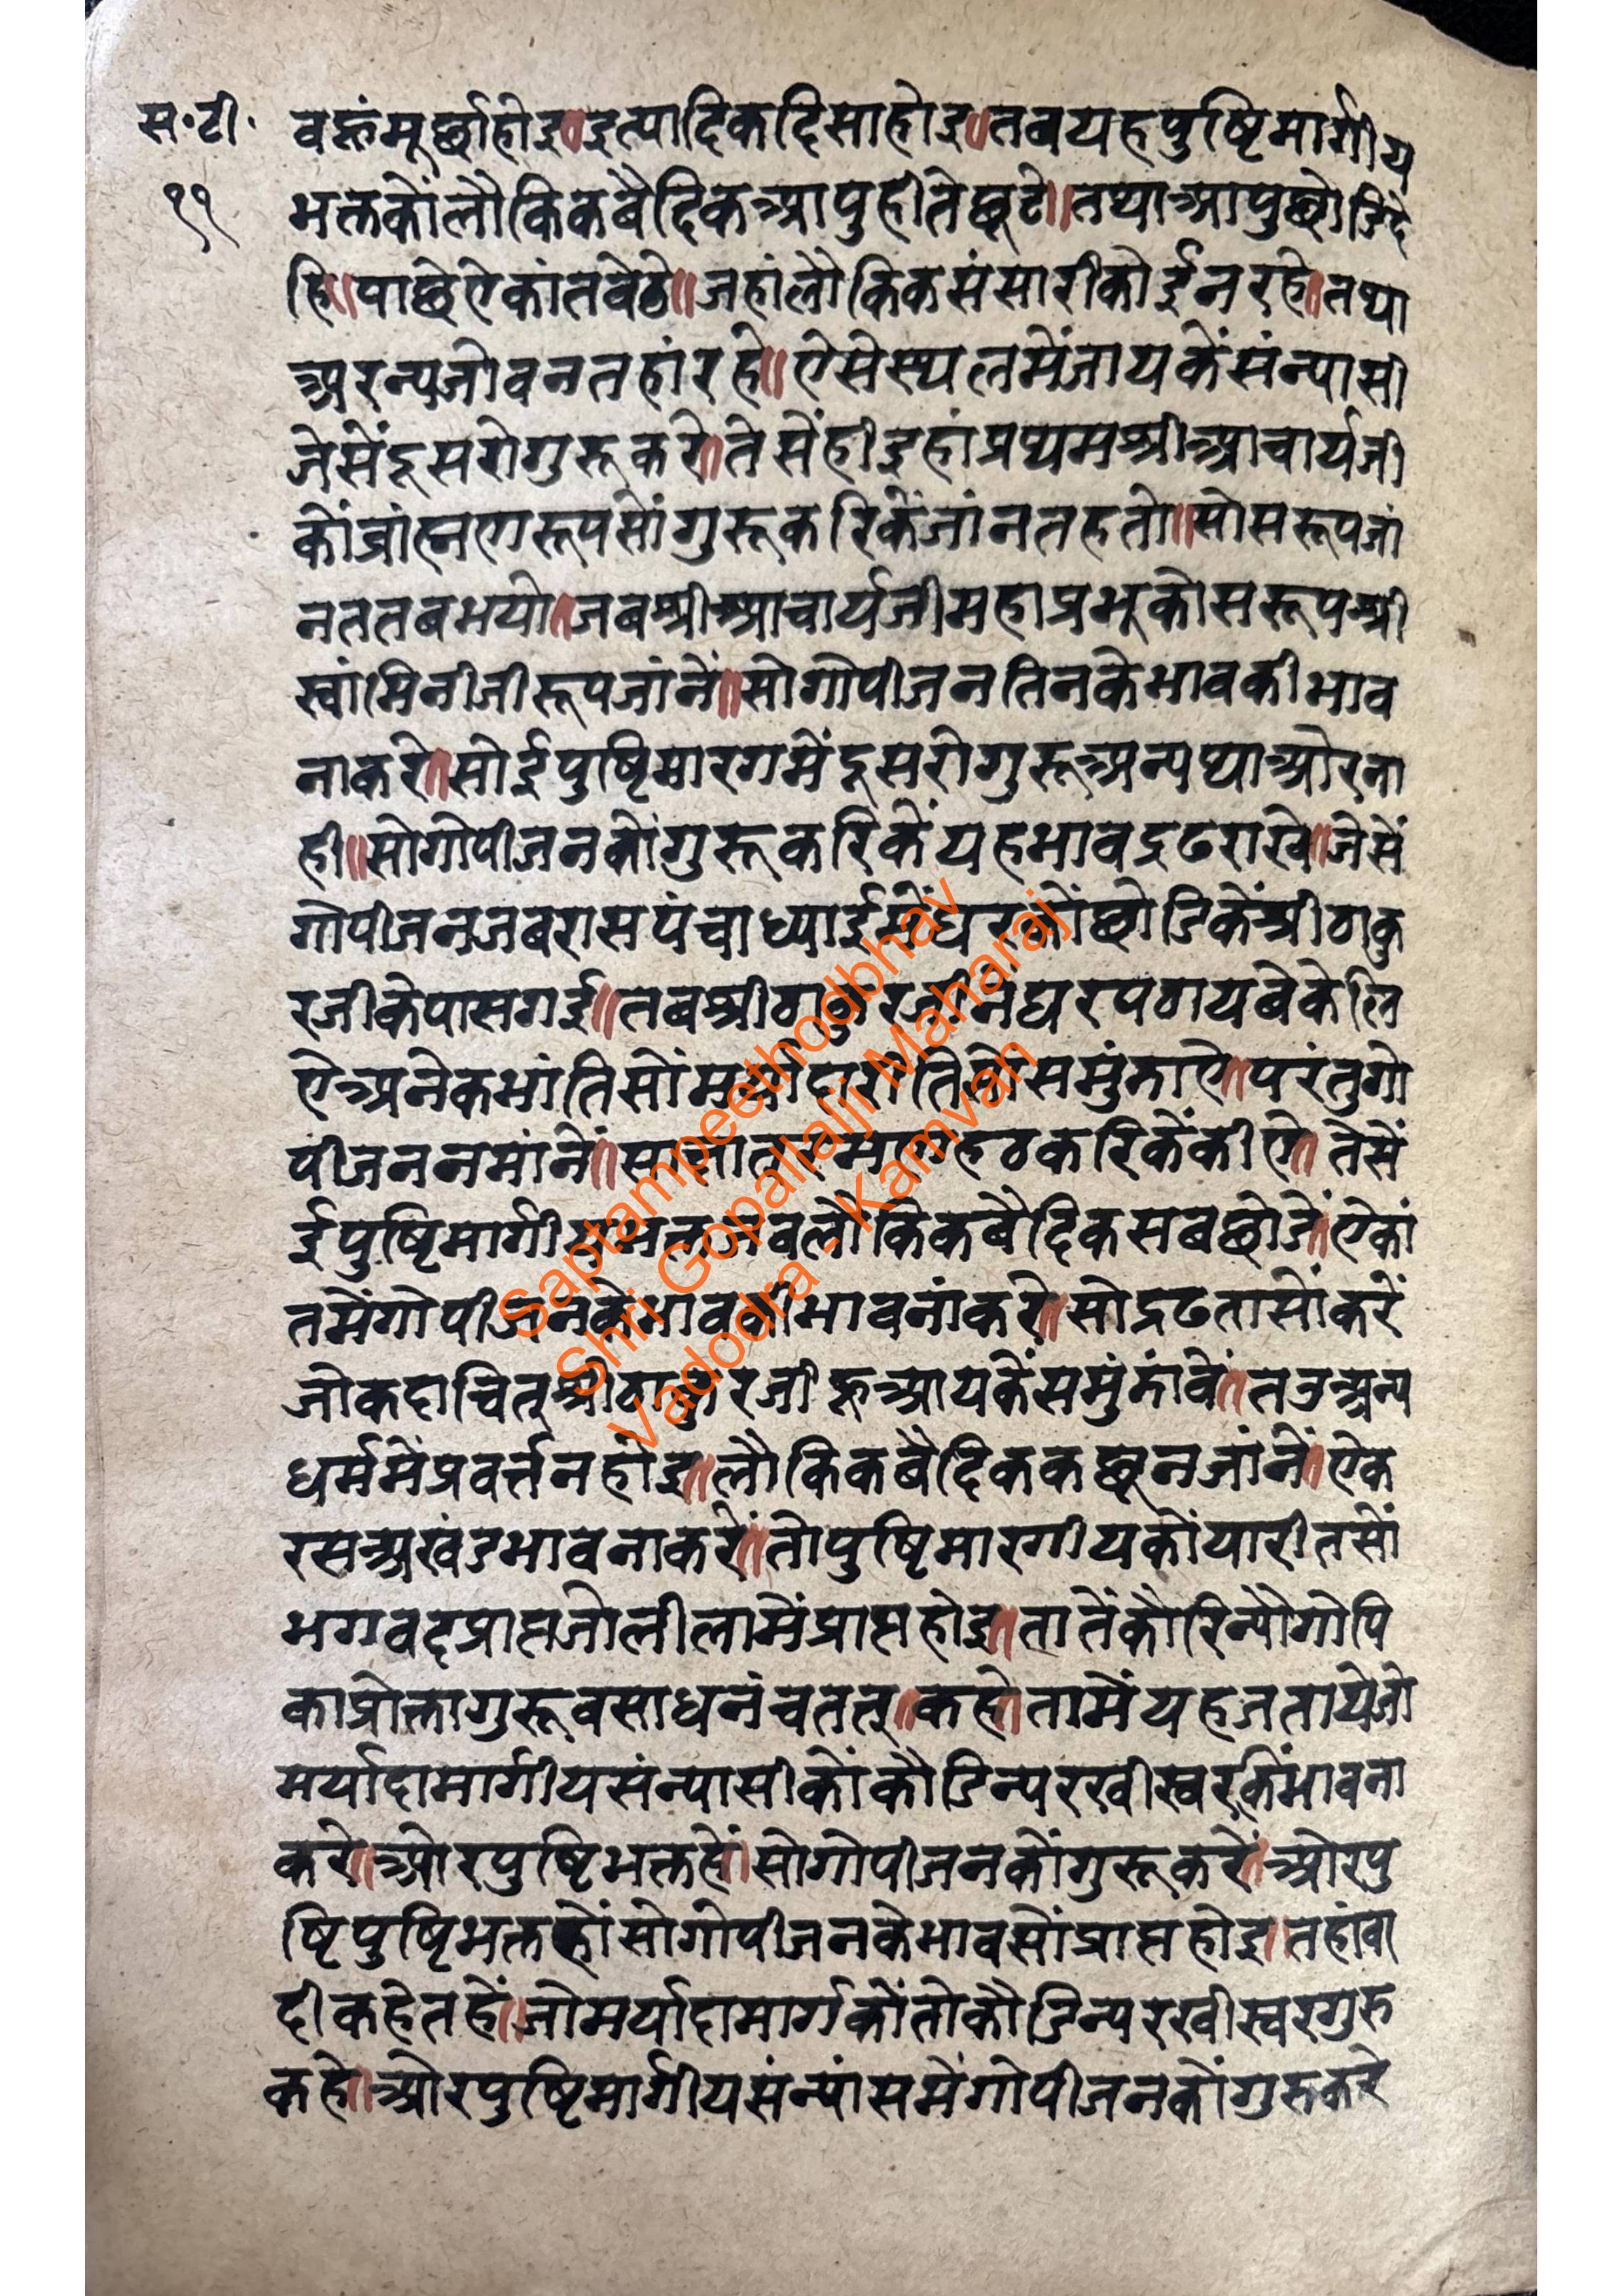 स॰टी॰
११
वहूंमूर्छाहोइ॥इत्यादिकदिसाहोइ॥तबयहपुष्टिमार्गीय
भक्तकोंलौकिकबैदिकआपुहीतेछूटे॥तथाआपुछोडिदे
हि॥पाछेऐकांतबेठे॥जहांलौकिकसंसारीकोईनरहे॥तथा
अरन्यजोवनतहांरहे॥ऐसेस्थलमेंजायकेंसंन्यासी
जेसेंदूसरोगुरूकरे॥तेसेंहीइहांप्रथमश्रीआचार्यजी
कोंब्रांह्मणरूपसोंगुरूकरिकेंजांनतहतो॥सोसरूपजां
नततबभयो॥जबश्रीआचार्यजीमहाप्रभूकोसरूपश्री
स्वांमिनीजीरूपजांनें॥सोगोपीजनतिनकेभावकीभाव
नाकरे॥सोईपुष्टिमारगमेंदूसरोगुरूअन्यथाओरना
ही॥सोगोपीजनकोंगुरूकरिकेंयहभावद्रढराखे॥जेसें
गोपीजनजबरासपंचाध्याईमेंघरकोंछोडिकेंश्रीठाकु
रजीकेपासगई॥तबश्रीठाकुरजीनेंघरपठायबेकेलि
ऐअनेकभांतिसोंमर्यादारीतिसोसमुंझाऐ॥परंतुगो
पीजनननमांनें॥ हठकरिकेंकीऐ॥तेसें
ईपुष्टिमार्गीयभक्तजबलौकिकबैदिकसबछोडें॥ऐकां
तमेंगोपीजनकेभावकीभावनांकरे॥सोद्रढतासोंकरें
जोकदाचितश्रीठाकुरजीहूआयकेंसमुंझांवें॥तउअन्य
धर्ममेंप्रवर्त्तनहोइ॥लौकिकबैदिककछूनजांनें॥ऐक
रसअखंडभावनाकरें॥तोपुष्टिमारगीयकोंयारीतसों
भगवद्प्राप्तजोलीलामेंप्राप्तहोइ॥तातेंकौरिन्यौगोपि
काप्रोक्तागुरूवसाधनंचतत्॥कहे॥तामेंयहजतायेजो
मर्यादामार्गीयसंन्यासीकोंकौडिन्यररवीस्वरकींभावना
करे॥ओरपुष्टिभक्तहें॥सोगोपीजनकोंगुरूकरें॥ओरपु
ष्टिपुष्टिभक्तहोंसोगोपीजनकेभावसोंप्राप्तहोइ॥तहांवा
दीकहेतहें॥जोमर्यादामार्गकोंतोकौडिन्यररवीस्वरगुरु
कहे॥ओरपुष्टिमार्गीयसंन्यांसमेंगोपीजनकोंगुरुकरे
Saptampeethodbhav
Shri Gopallalji Maharaj
Vadodra - Kamvan